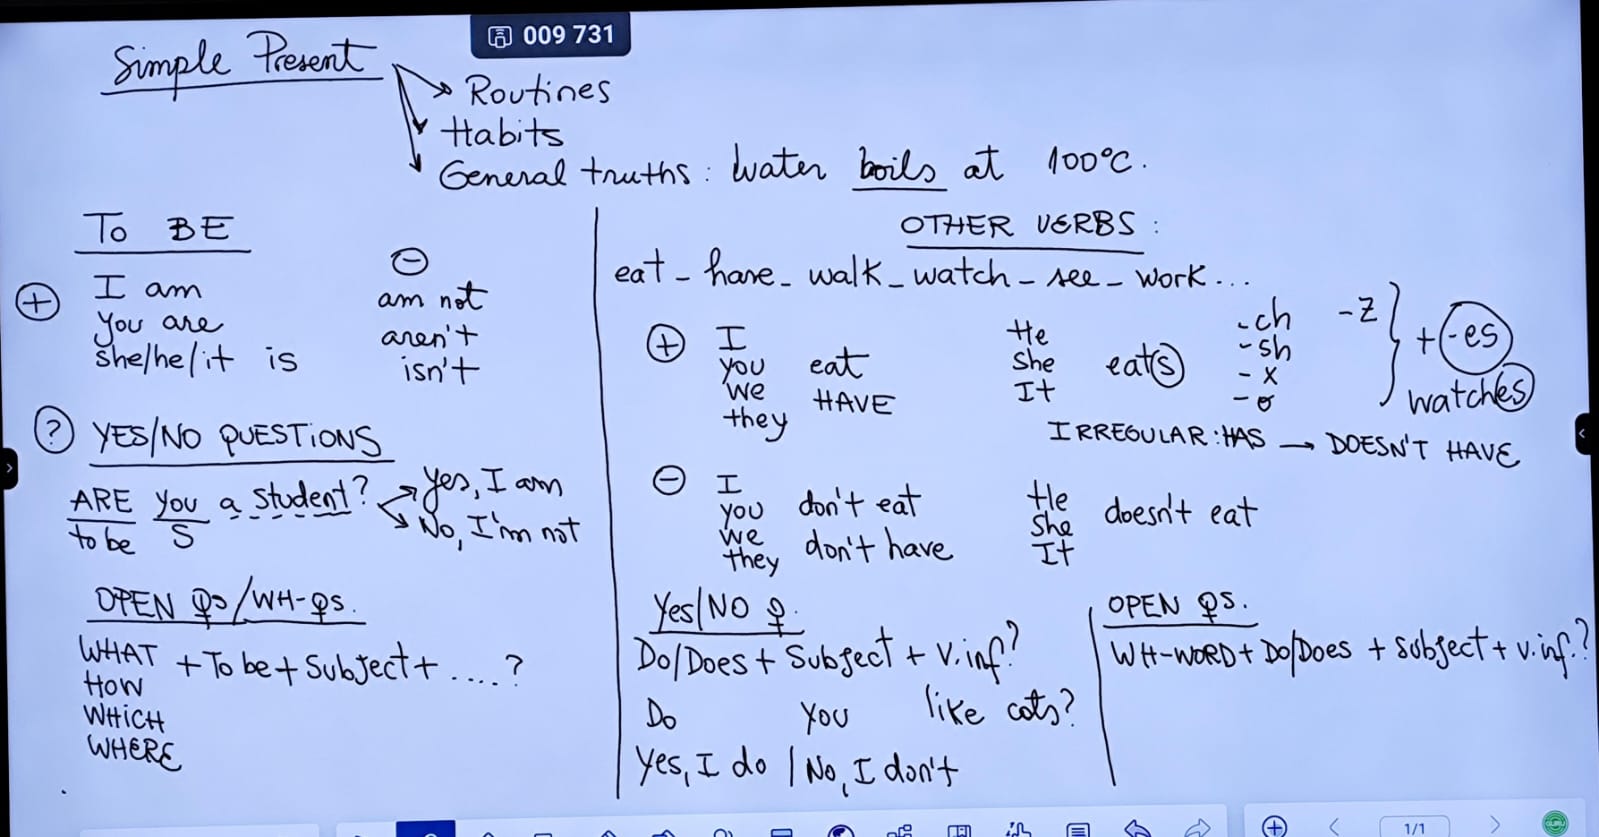 009 731
Simple Present
Routines
Habits
General truths: Water boils at 100°C.
TO BE
+
I am
you are
she/he/it is
−
am not
aren't
isn't
? YES/NO QUESTIONS
ARE you a student?
to be S
Yes, I am
No, I'm not
OPEN Qs/WH-QS.
WHAT + To be + Subject + ....?
HOW
WHICH
WHERE
OTHER VERBS :
eat - have - walk - watch - see - work ...
+
I
you
we
they
eat
HAVE
He
She
It
eats
-ch
-sh
-x
-o
-z
+ -es
watches
IRREGULAR: HAS → DOESN'T HAVE
−
I
you
we
they
don't eat
don't have
He
She
It
doesn't eat
Yes/NO Q.
Do/Does + Subject + v.inf?
Do you like cats?
Yes, I do / No, I don't
OPEN QS.
WH-WORD + Do/Does + subject + v.inf.?
1/1
GURU